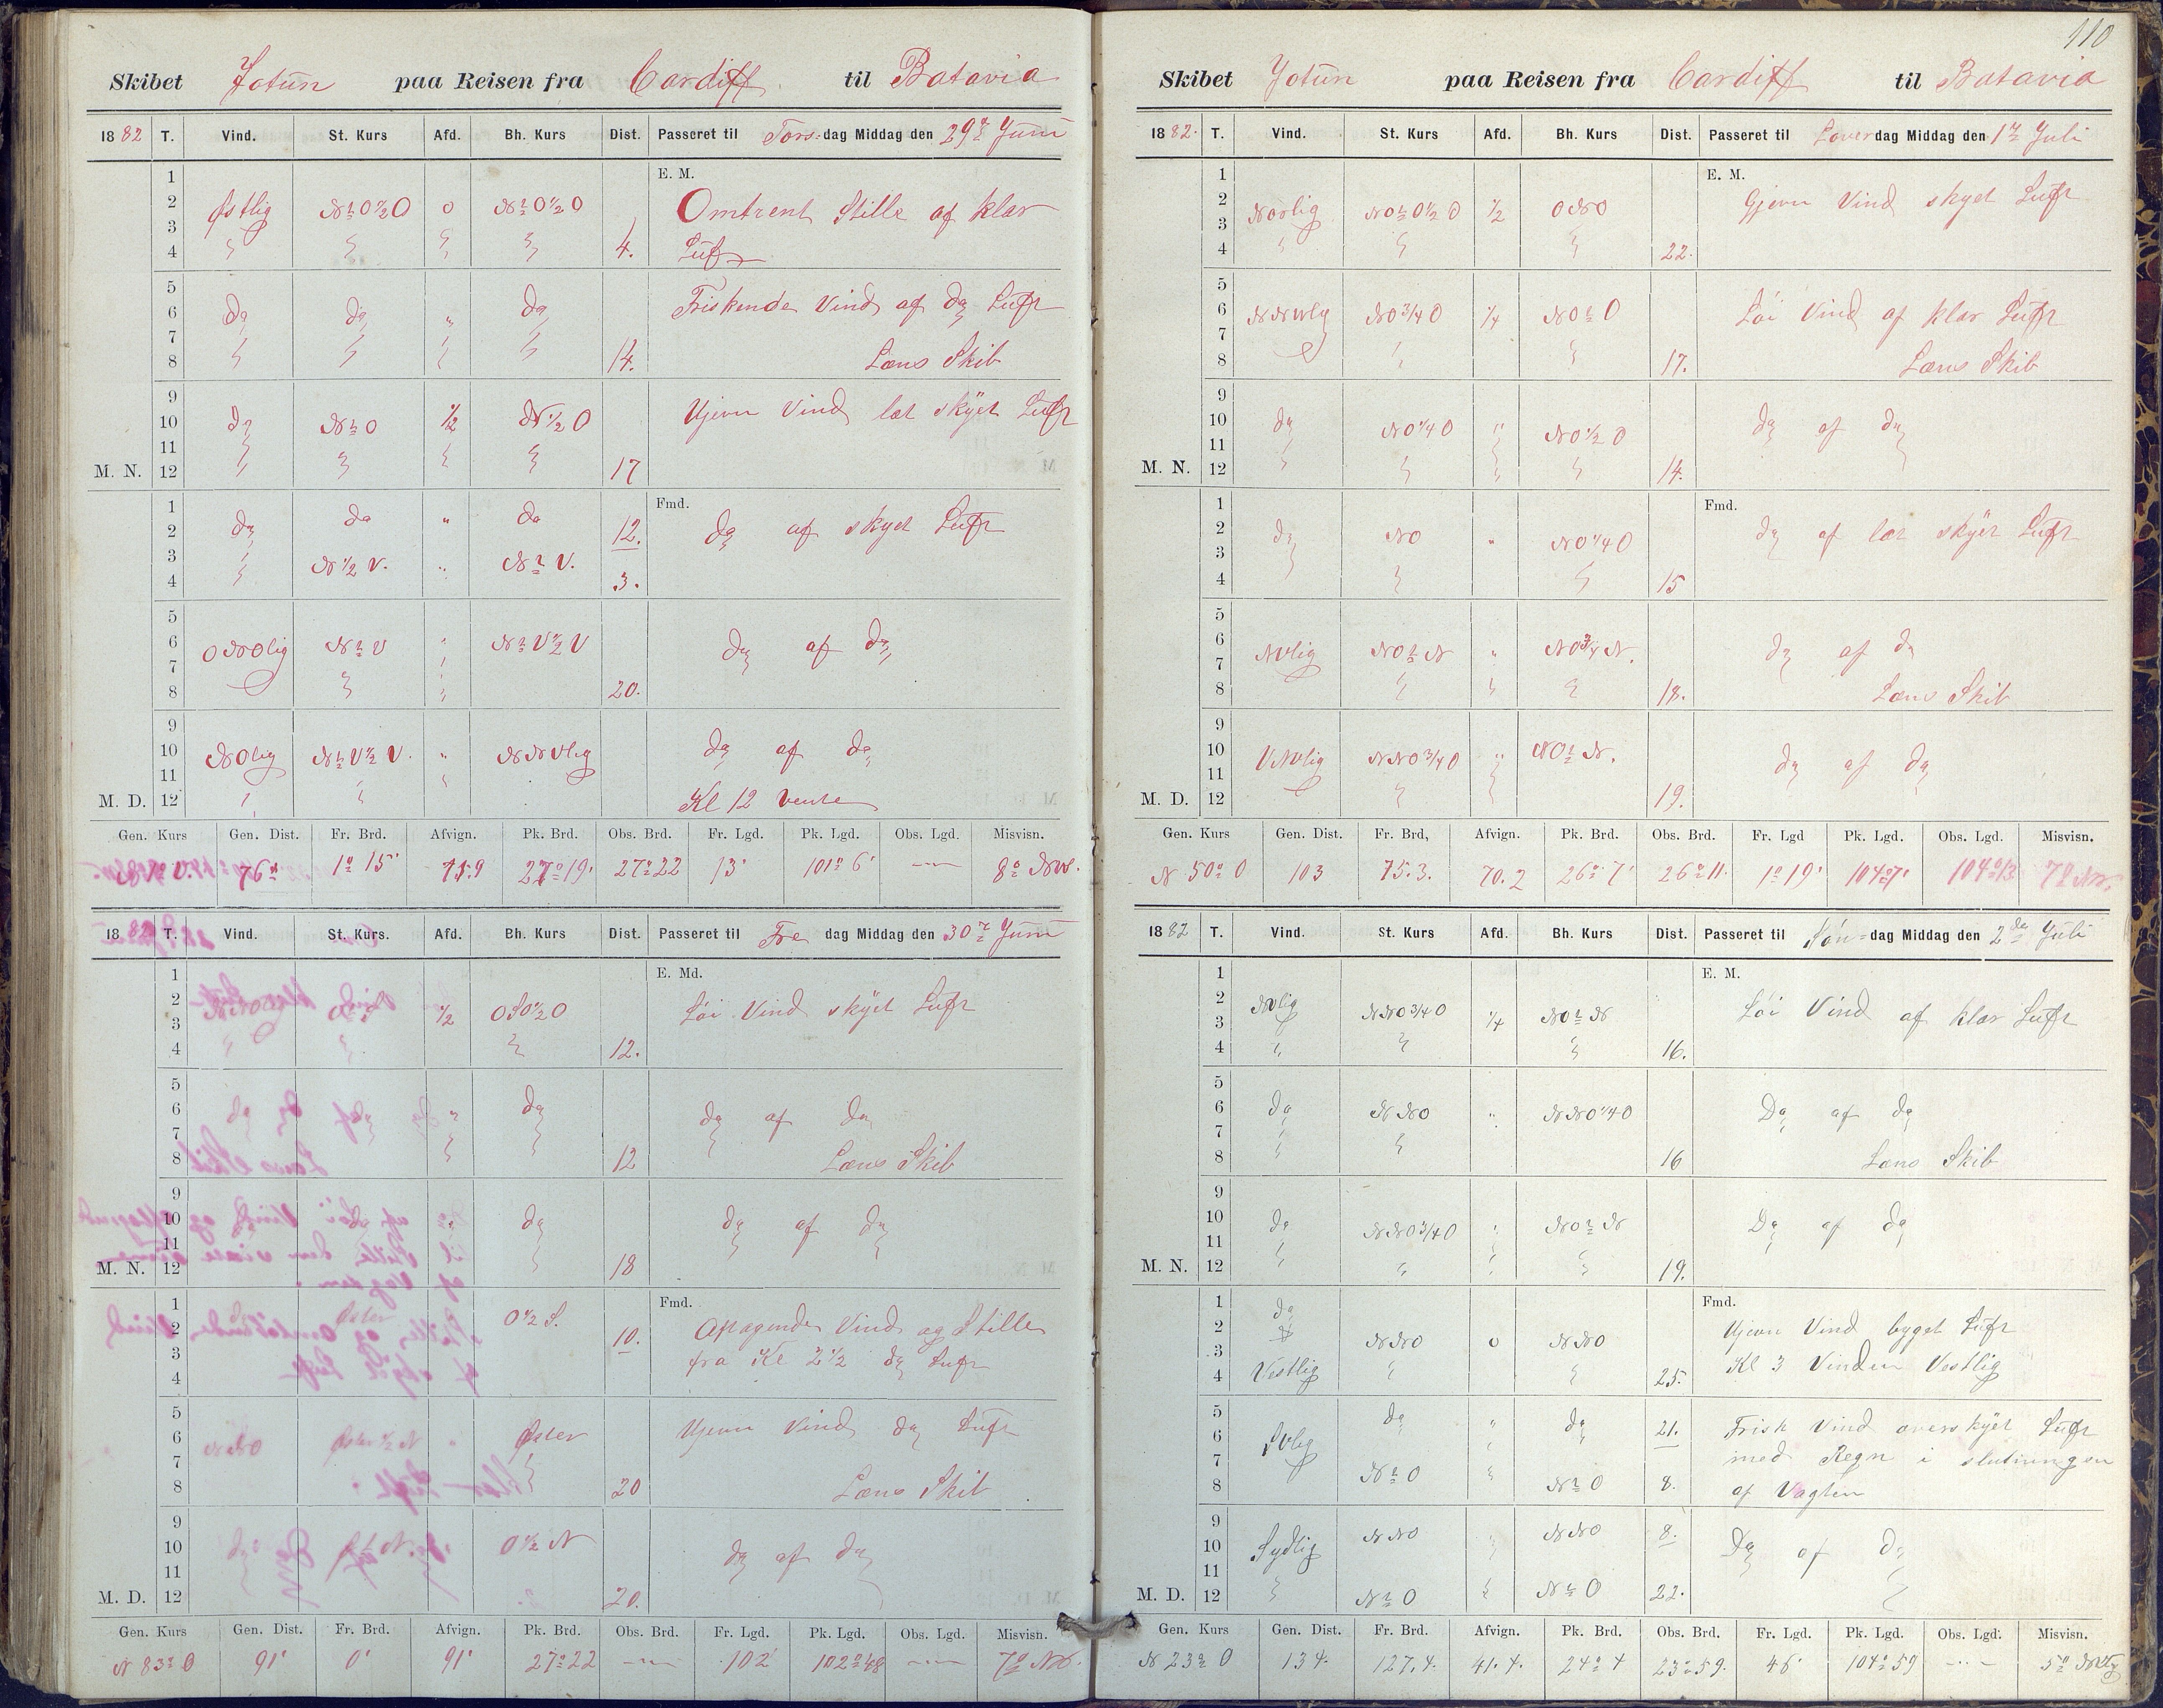 Skibet Jotun paa Reisen fra Cardiff til Batavia
1882 T. Vind. St. Kurs Afd. Bh. Kurs Dist. Passeret til Tors-dag Middag den 29de Juni
E. M.
1
2 Østlig N t O ½ O 0 N t O ½ O Omtrent Stille af klar
3
4 4. Luft
5
6 do do " do Friskende Vind af do Luft
7
8 14. Læns Skib
9 Ujevn Vind let skyet Luft
10 do N t O ½ N ½ O
11
M. N. 12 17
1 Fmd.
2 do do " do 12. do af skyet Luft
3 N ½ V. " N t V.
4 3.
5
6 ONOlig N t V " N t V ½ V do af do
7
8 20.
9
10 NOlig N t V ½ V. " NNVlig do af do
11
M. D. 12 Kl 12 vente
Gen. Kurs Gen. Dist. Fr. Brd. Afvign. Pk. Brd. Obs. Brd. Fr. Lgd. Pk. Lgd. Obs. Lgd. Misvisn.
76 1° 15' 27° 19' 27° 22 13' 101° 6' — 8° NV.
1882 T. Vind. St. Kurs. Afd. Bh. Kurs Dist. Passeret til Fre dag Middag den 30te Juni
E. Md.
1
2 ½ OSO ½ O Löi Vind skyet Luft
3
4 12.
5
6 " do do af do
7
8 12 Læns Skib
9
10 " do do af do
11
M. N. 12 18
1 Fmd.
2 Øster O ½ S. 10. Aftagende Vind og Stille
3 fra Kl 2 ½ do Luft
4
5
6 NNO Øster ½ N " Øster Ujevn Vind do Luft
7
8 20 Læns Skib
9
10 do Ø t N. O ½ N do af do
11
M. D. 12 20.
Gen. Kurs Gen. Dist. Fr. Brd. Afvign. Pk. Brd. Obs. Brd. Fr. Lgd. Pk. Lgd. Obs. Lgd. Misvisn.
N 83° O 91' 0' 91' 27° 22 — 102' 102° 48 — 7° NV.
110
Skibet Jotun paa Reisen fra Cardiff til Batavia
1882. T. Vind. St. Kurs Afd. Bh. Kurs Dist. Passeret til Löverdag Middag den 1te Juli
E. M.
1
2 Norlig NO t O ½ O ½ ONO Gjevn Vind skyet Luft
3
4 22.
5
6 NNVlig NO ¾ O ¼ NO t O Löi Vind af klar Luft
7
8 17. Læns Skib
9
10 do NO ¼ O " NO ½ O do af do
11
M. N. 12 14.
1 Fmd.
2 do NO " NO ¼ O do af let skyet Luft
3
4 15
5
6 NVlig NO t N " NO ¾ N. do af do
7
8 18. Læns Skib
9
10 VNVlig NNO ¾ O " NO t N. do af do
11
M. D. 12 19.
Gen. Kurs Gen. Dist. Fr. Brd, Afvign. Pk. Brd. Obs. Brd. Fr. Lgd Pk. Lgd. Obs. Lgd. Misvisn.
N 50° O 103 75.3. 70.2 26° 7' 26° 11. 1° 19' 104° 7' 104° 13 7° NV.
1882 T. Vind. St. Kurs Afd. Bh. Kurs Dist. Passeret til Sön-dag Middag den 2de Juli
E. M.
1
2 NVlig NNO ¾ O ¼ NO t N Löi Vind af klar Luft
3
4 16.
5
6 do NNO " NNO ¼ O Do af do
7
8 16 Læns Skib
9
10 do NNO ¾ O " NO t N Do af do
11
M. N. 12 19.
1 do Fmd.
2 NNO 0 NNO Ujevn Vind byget Luft
3 Kl 3 Vinden Vestlig
4 Vestlig 25.
5 do " do 21. Frisk Vind overskyet Luft
6 SVlig
7 N t O N t O med Regn i slutningen
8 8. af Vagten
9 NNO NNO 8.
10 Sydlig Do af do
11
M. D. 12 N t O N t O 22.
Gen. Kurs Gen. Dist. Fr. Brd. Afvign. Pk. Brd. Obs. Brd. Fr. Lgd. Pk. Lgd. Obs. Lgd. Misvisn.
N 23° O 134. 127.4. 41.4. 24° 4 23° 59. 46' 104° 59 — 5° NVlg